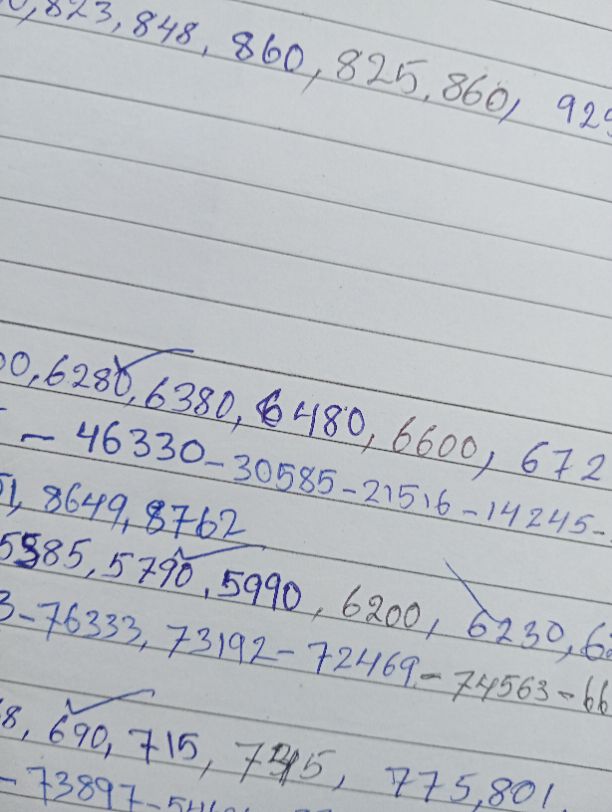 823, 848, 860, 825, 860, 929
00, 6280, 6380, 6480, 6600, 672
- 46330 - 30585 - 21516 - 14245 -
51, 8649, 8762
5585, 5790, 5990, 6200, 6230, 6
3 - 76333, 73192 - 72469 - 74563 - 66
8, 690, 715, 745, 775, 801
- 73897 -